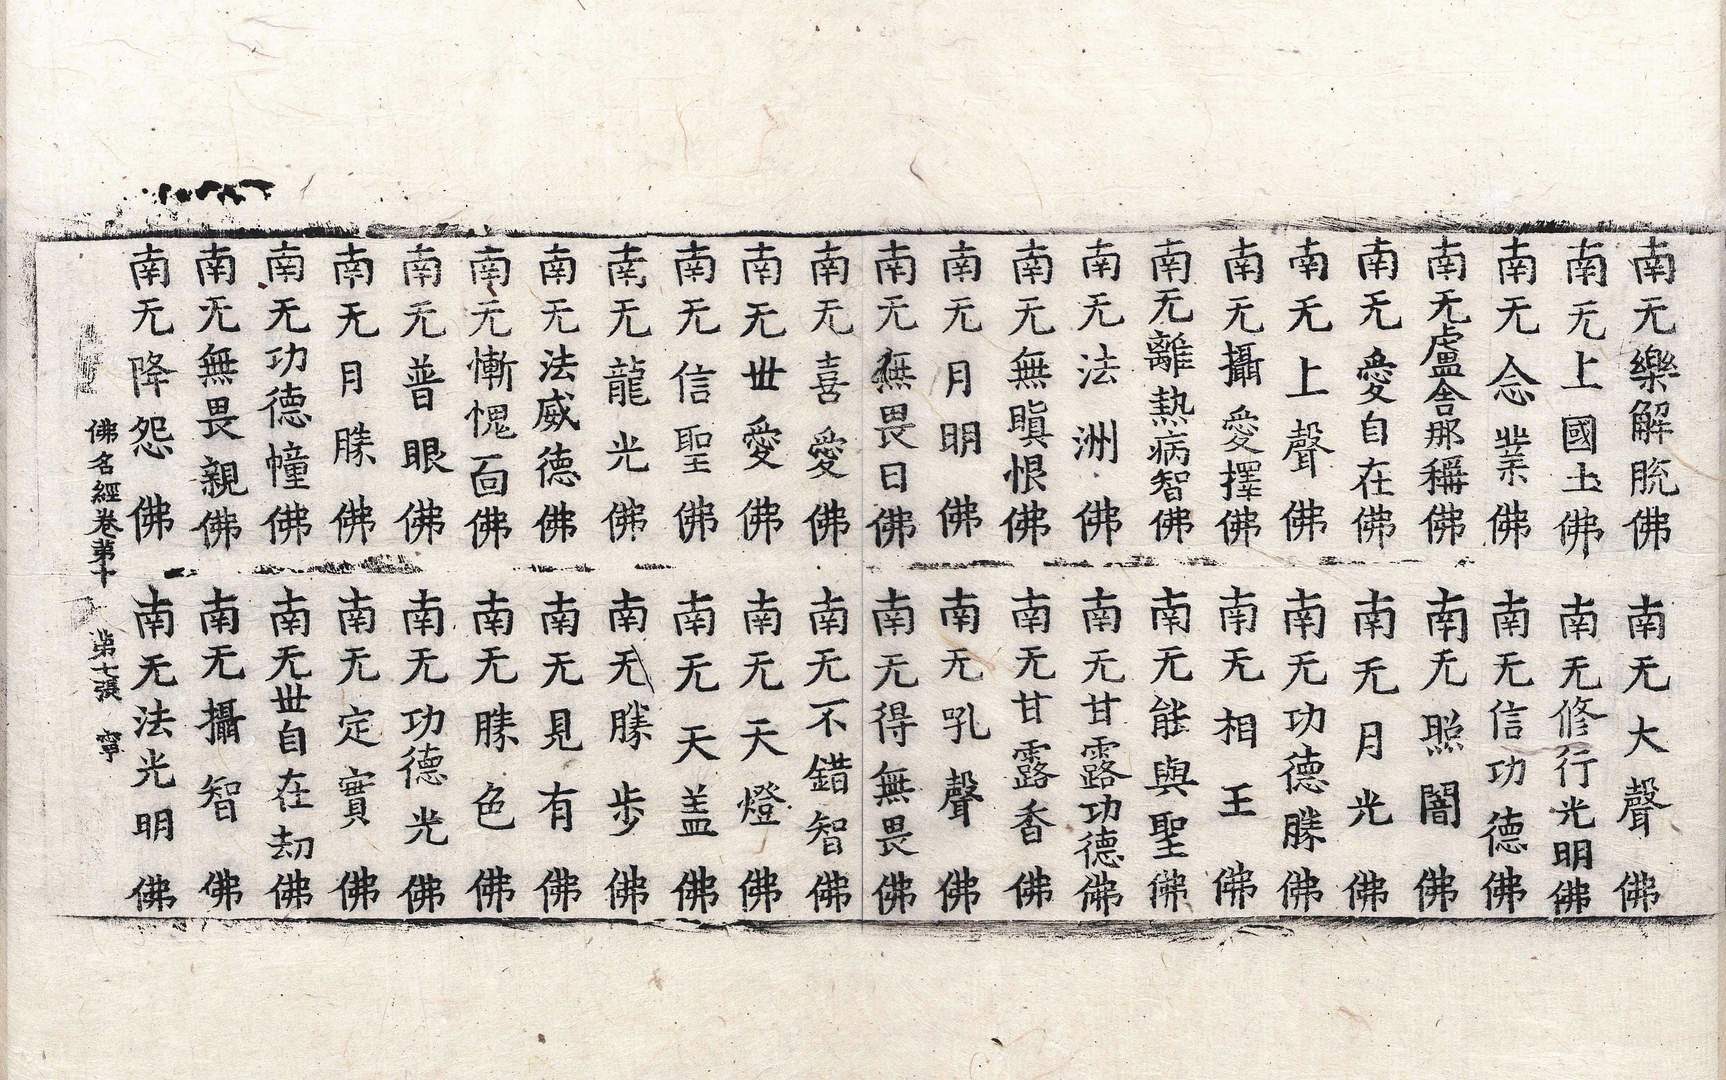 南无樂解脫佛　南无大聲佛
南无上國土佛　南无修行光明佛
南无念業佛　南无信功德佛
南无盧舍那稱佛　南无照闇佛
南无愛自在佛　南无月光佛
南无上聲佛　南无功德勝佛
南无攝愛擇佛　南无相王佛
南无離熱病智佛　南无能與聖佛
南无法洲佛　南无甘露功德佛
南无無瞋恨佛　南无甘露香佛
南无月明佛　南无吼聲佛
南无無畏日佛　南无得無畏佛
南无喜愛佛　南无不錯智佛
南无世愛佛　南无天燈佛
南无信聖佛　南无天盖佛
南无龍光佛　南无勝步佛
南无法威德佛　南无見有佛
南无慚愧面佛　南无勝色佛
南无普眼佛　南无功德光佛
南无月勝佛　南无定實佛
南无功德幢佛　南无世自在劫佛
南无無畏親佛　南无攝智佛
南无降怨佛　南无法光明佛
佛名經卷第十　第七張　寧